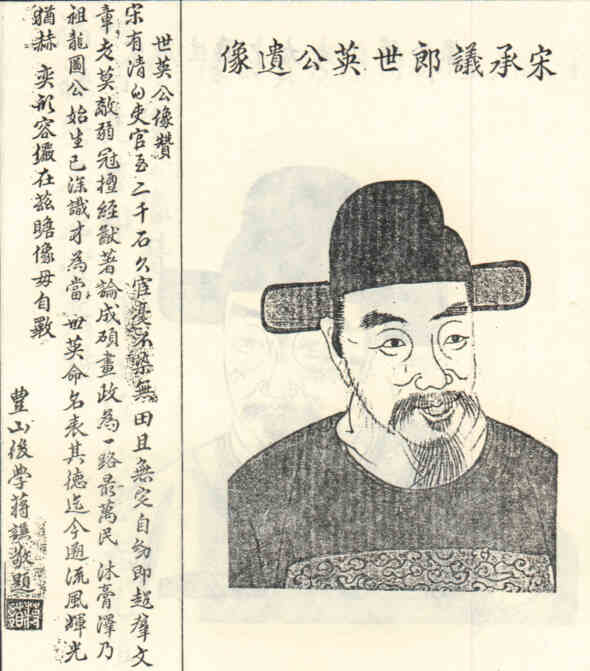 宋承議郎世英公遺像
世英公像贊
宋有清白吏官至二千石久宦不染無田且無宅自幼即超羣文
章老莫敵弱冠擅經猷著論成碩畫政為一路最萬民沐膏澤乃
祖龍圖公始生已深識才為當世英命名表其德迄今遡流風輝光
猶赫奕形容儼在茲瞻像毋自斁
豐山後學蔣敬題